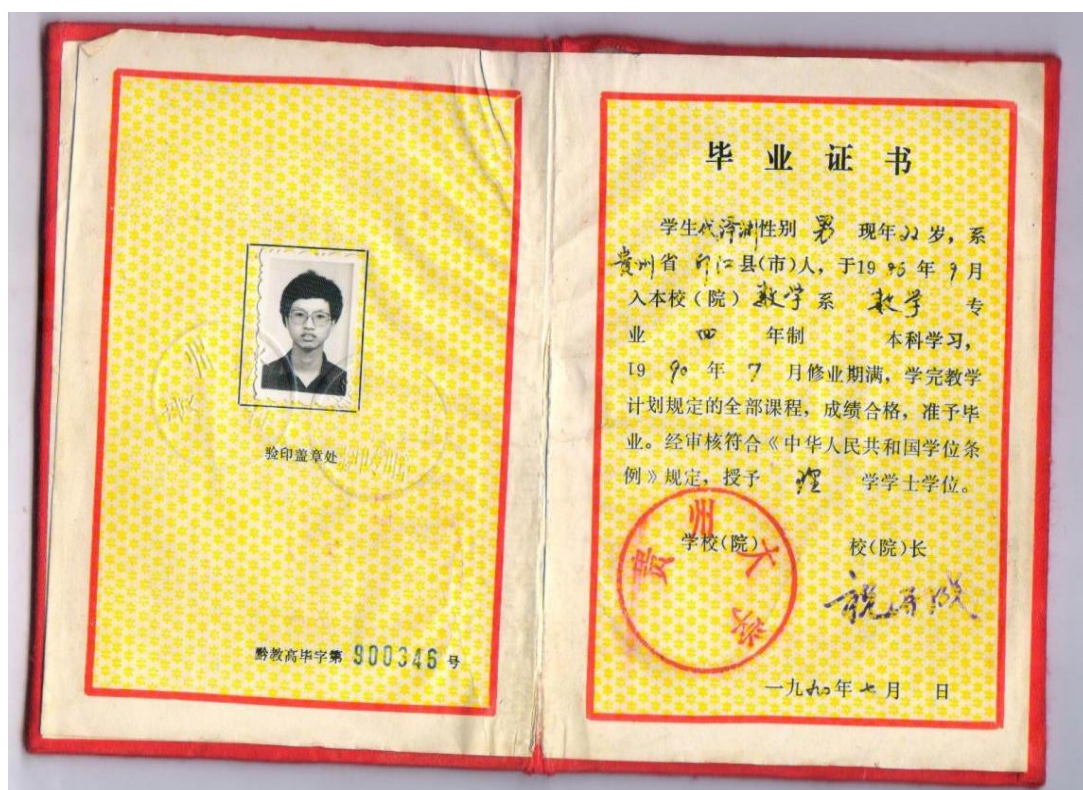 验印盖章处
黔教高毕字第 900346 号
毕业证书
学生代 性别 男 现年22岁，系
贵州省 印江县(市)人，于19 86 年 9 月
入本校(院) 数学系 数学 专
业 四 年制 本科学习，
19 90 年 7 月修业期满，学完教学
计划规定的全部课程，成绩合格，准予毕
业。经审核符合《中华人民共和国学位条
例》规定，授予 理 学学士学位。
学校(院) 校(院)长
贵州大学
一九九〇年七月 日